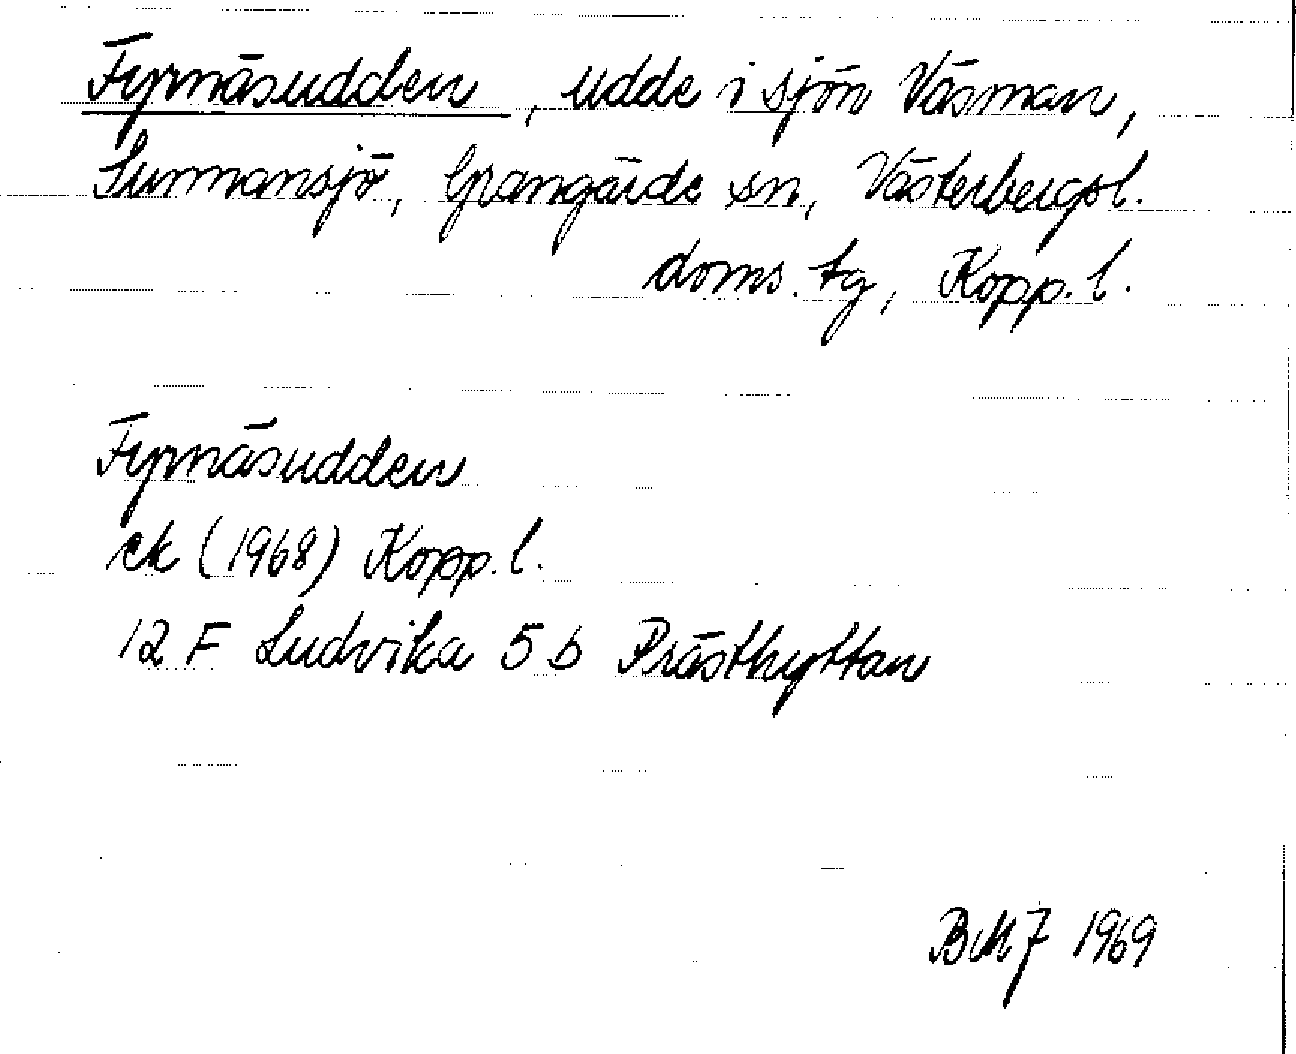 Fyrnäsudden, udde i sjön Väsman,
Sunnansjö, Grangärde sn, Västerbergsl.
doms. tg, Kopp. l.
Fyrnäsudden
ek (1968) Kopp. l.
12 F Ludvika 5 b Prästhyttan
BMJ 1969